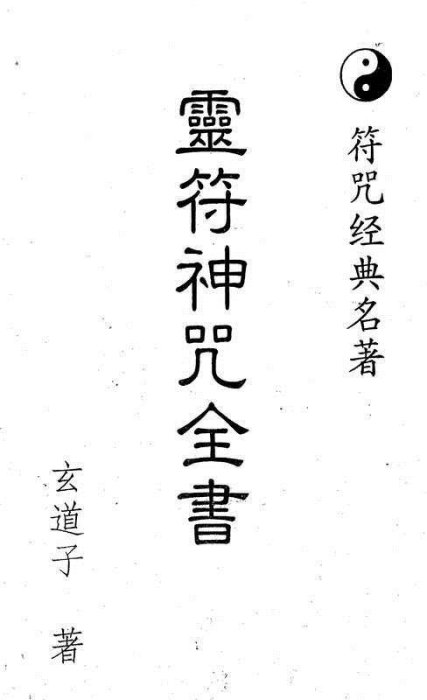 符咒经典名著
靈符神咒全書
玄道子 著